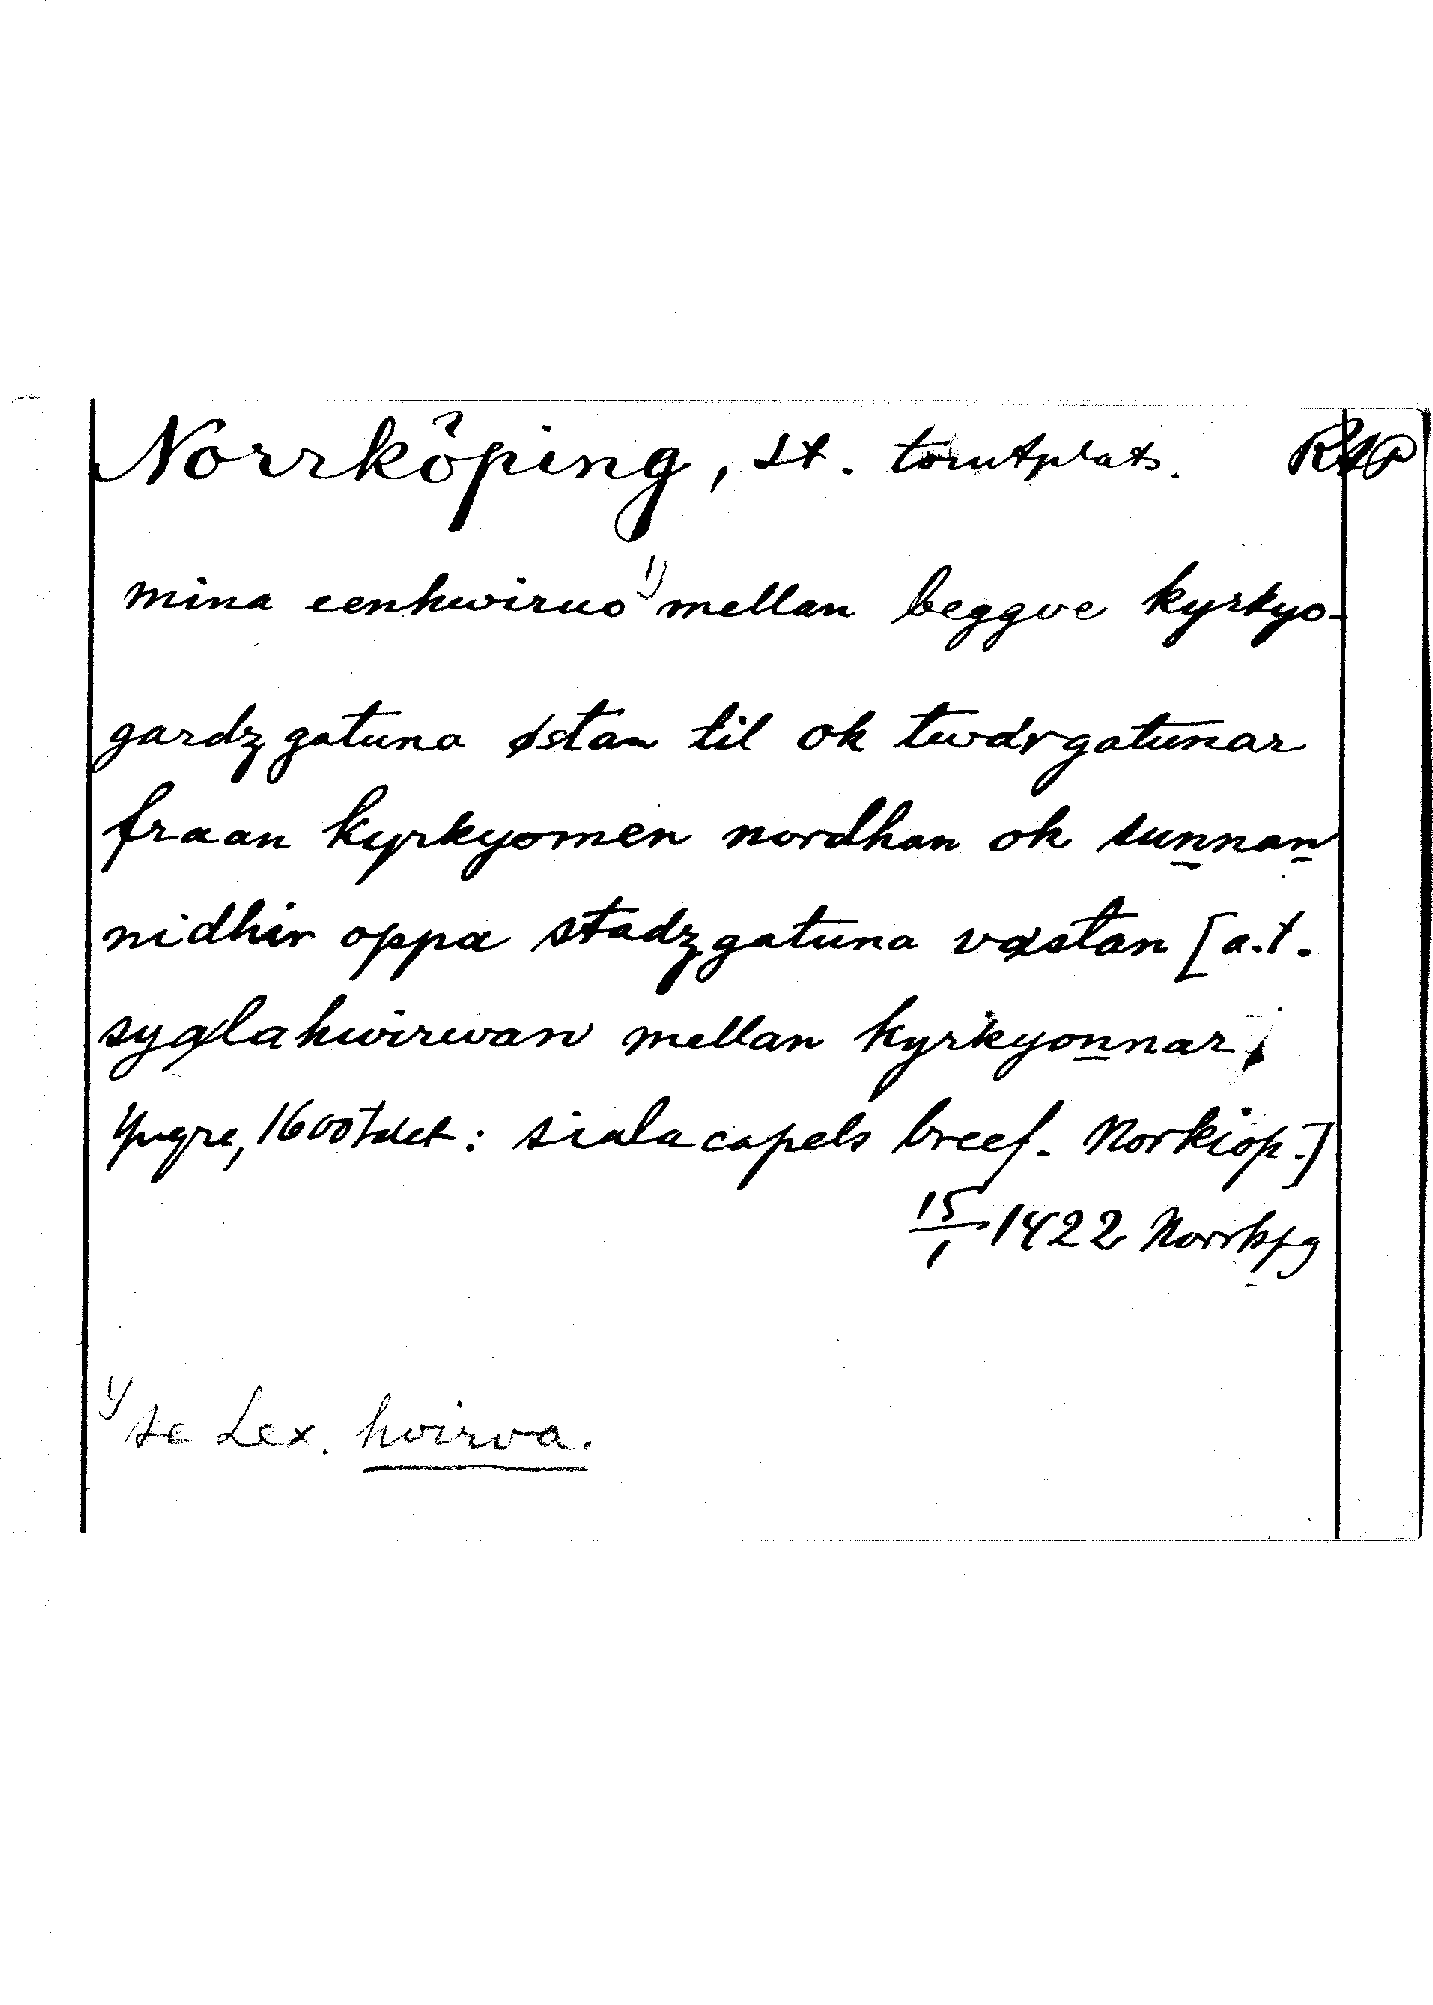 Norrköping, st. tomtplats. RAP
mina eenhwiruo 1) mellan beggve kyrkyo-
gardz gatuna østan til ok twdrgatunar
fraan kyrkyomen nordhan ok sunnan
nidhir oppa stadz gatuna væstan [a.t.
syælahwirwan mellan kyrkyonnar;
Yngre, 1600talet: siala capels breef. Norkiöp.]
15/1 1422 Norrkpg
1) se Lex. hvirva.